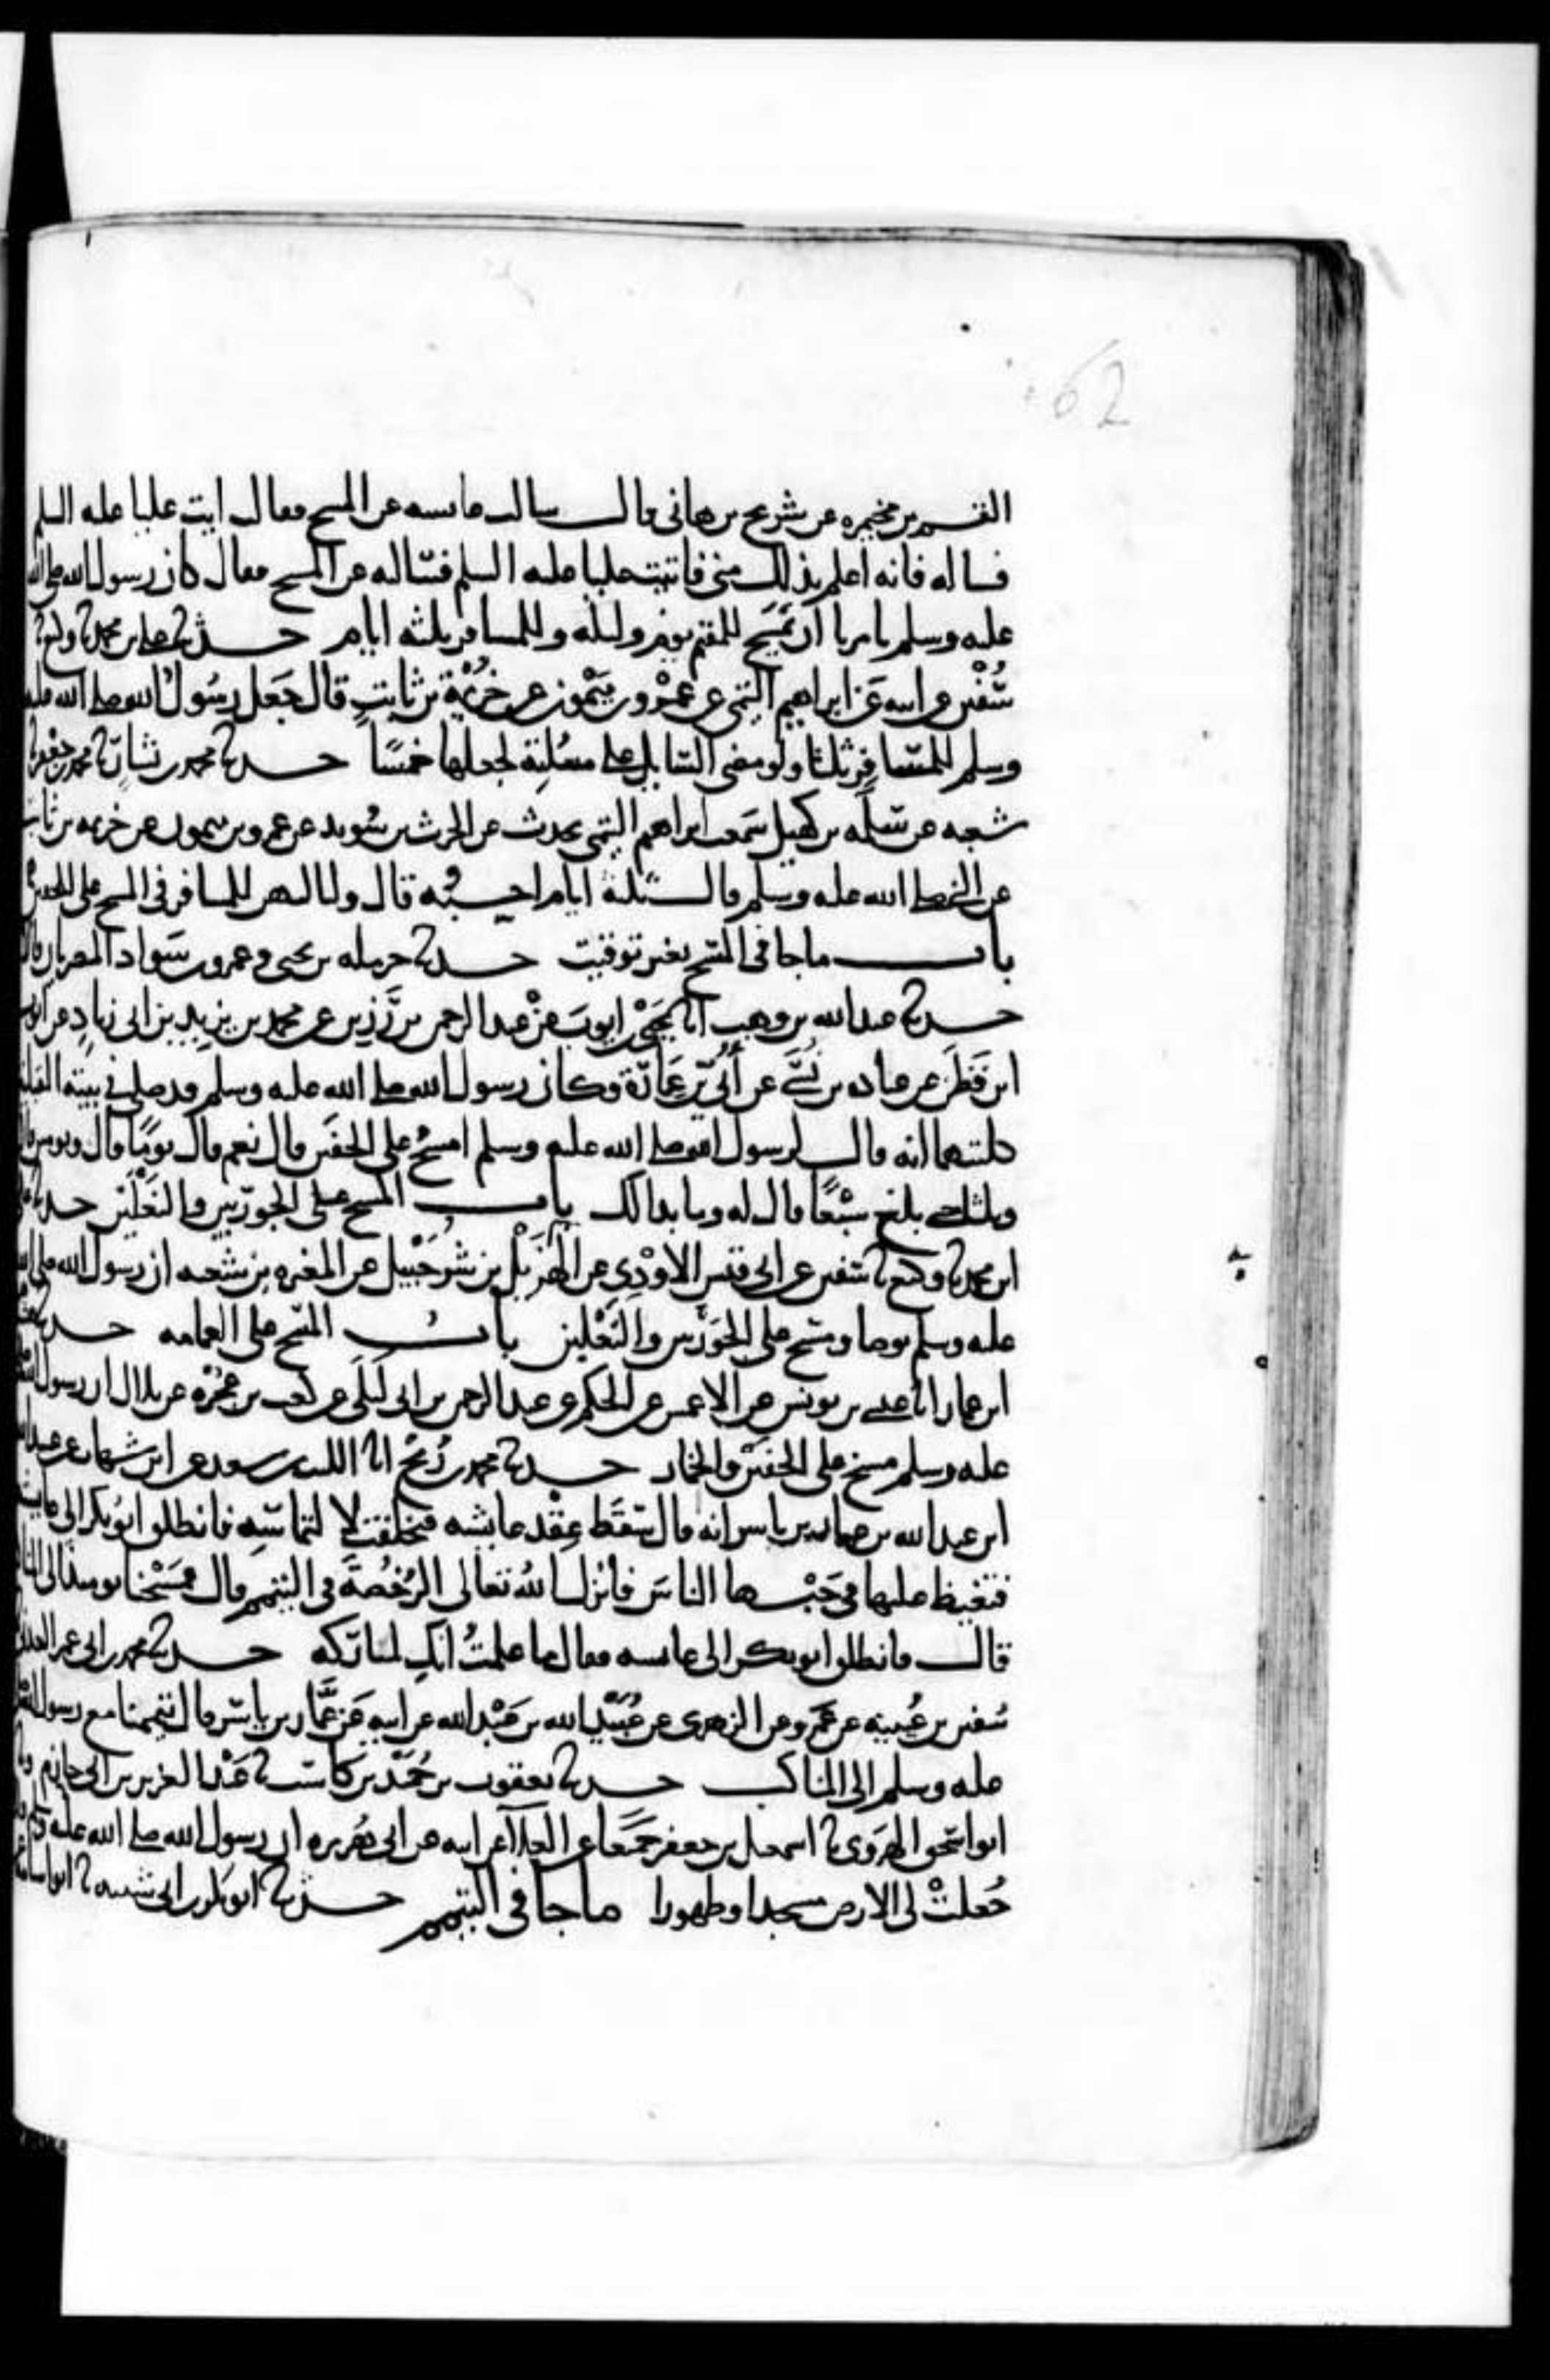 62
القسم بن مخيمره عن شريح بن هانى قال سالت عايشه عن المسح فقال ايت عليا عليه السلم
فساله فانه اعلم بذلك منى فاتيت عليا عليه السلم فسالته عن المسح فقال كان رسول الله صلى الله
عليه وسلم يامرنا ان نمسح للمقيم يوم وليله وللمسافر ثلثه ايام حدثنا على بن محمد نا وكيع نا
سفين عن ابيه عن ابراهيم التيمى عن عمرو بن ميمون عن خزيمة بن ثابت قال جعل رسول الله صلى الله عليه
وسلم للمسافر ثلثا ولو مضى السايل على مسلته لجعلها خمسا حدثنا محمد بن بشار نا محمد بن جعفر نا
شعبه عن سلمه بن كهيل سمعت ابراهيم التيمى يحدث عن الحرث بن سويد عن عمرو بن ميمون عن خزيمه بن ثابت
عن النبى صلى الله عليه وسلم قال ثلثة ايام احسبه قال ولياليهن للمسافر فى المسح على الخفين
باب ما جا فى المسح بغير توقيت حدثنا حرمله بن يحيى وعمرو بن سواد المصريان قالا
حدثنا عبد الله بن وهب انا يحيى بن ايوب عن عبد الرحمن بن رزين عن محمد بن يزيد بن ابى زياد عن ايوب
ابن قطن عن عباده بن نسى عن ابى بن عمارة وكان رسول الله صلى الله عليه وسلم قد صلى فى بيته القبلتين
كلتيهما انه قال لرسول الله صلى الله عليه وسلم امسح على الخفين قال نعم قال يوما قال ويومين قال
وثلثا حتى بلغ سبعا قال له وما بدا لك باب المسح على الجوربين والنعلين حدثنا على
ابن محمد نا وكيع نا سفين عن ابى قيس الاودى عن الهزيل بن شرحبيل عن المغيره بن شعبه ان رسول الله صلى الله
عليه وسلم توضا ومسح على الجوربين والنعلين باب المسح على العمامه حدثنا هشام
ابن عمار انا عيسى بن يونس عن الاعمش عن الحكم عن عبد الرحمن بن ابى ليلى عن كعب بن عجره عن بلال ان رسول الله صلى
عليه وسلم مسح على الخفين والخمار حدثنا محمد بن رمح انا الليث بن سعد عن ابن شهاب عن عبيد الله
ابن عبد الله عن عمار بن ياسر انه قال سقط عقد عايشه فتخلفت لالتماسه فانطلق ابو بكر الى عايشه
فتغيظ عليها فى حبسها الناس فانزل الله تعالى الرخصة فى التيمم قال فمسحنا يوميذ الى المناكب
قال فانطلق ابو بكر الى عايشه فقال ما علمت انك لمباركه حدثنا محمد بن ابى عمر العدنى
سفين بن عيينه عن عمرو عن الزهرى عن عبيد الله بن عبد الله عن ابيه عن عمار بن ياسر قال تيممنا مع رسول الله
عليه وسلم الى المناكب حدثنا يعقوب بن حميد بن كاسب نا عبد العزيز بن ابى حازم ونا
ابو اسحق الهروى نا اسمعيل بن جعفر جميعا عن العلا عن ابيه عن ابى هريره ان رسول الله صلى الله عليه وسلم
جعلت لى الارض مسجدا وطهورا ما جا فى التيمم حدثنا ابو بكر بن ابى شيبه نا ابو اسامه